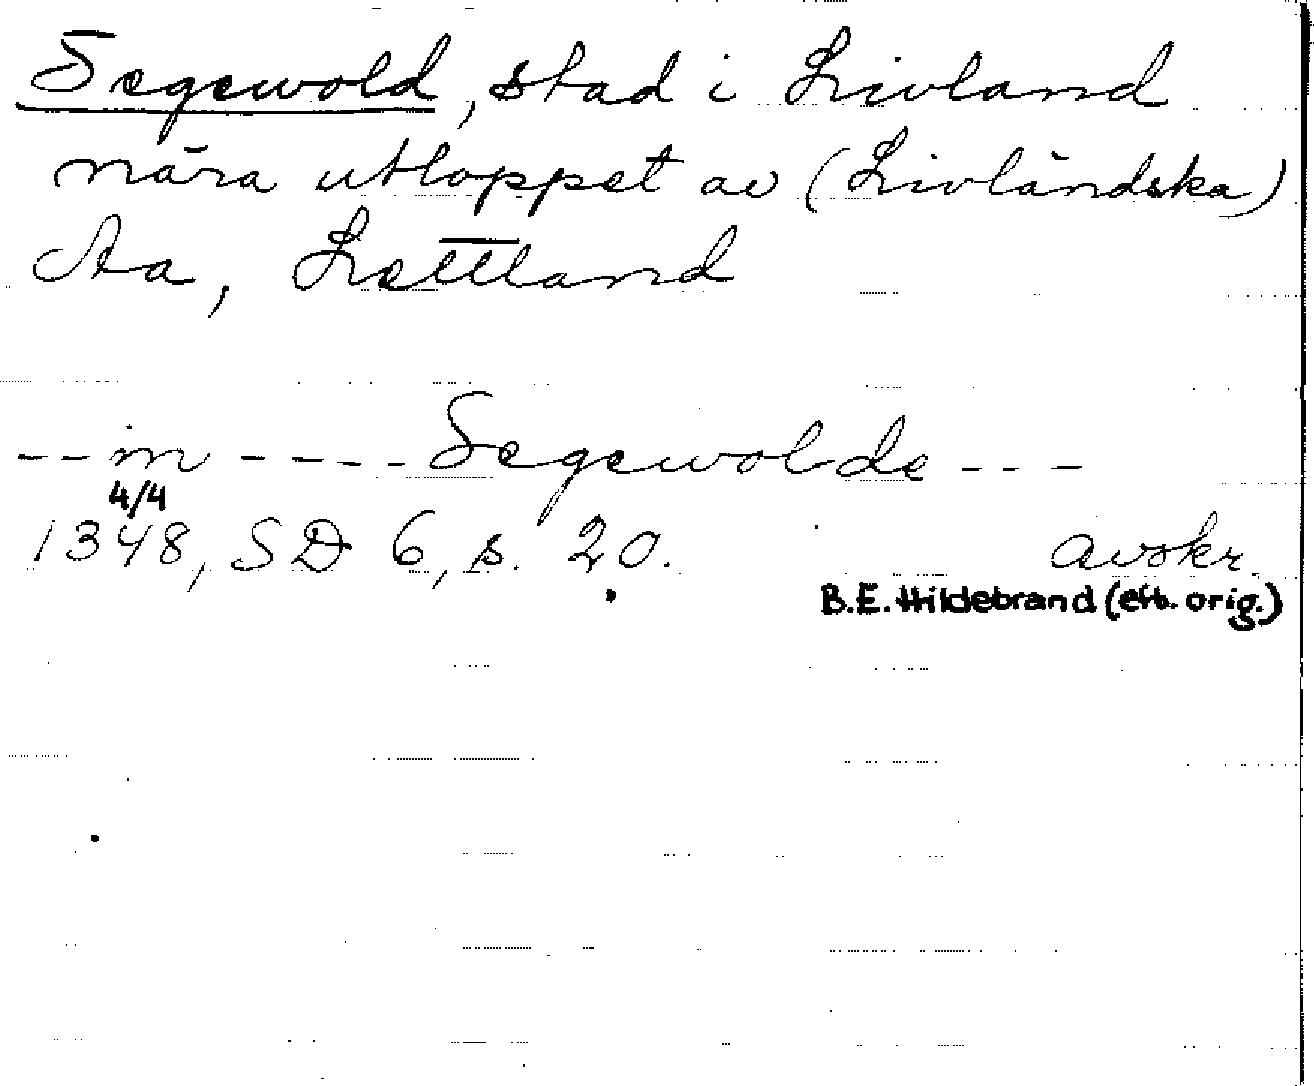 Segewold, stad i Livland
nära utloppet av (Livländska)
Aa, Lettland
--m----Segewolde---
4/4
1348, SD 6, s. 20. avskr.
B.E. Hildebrand (eft. orig.)